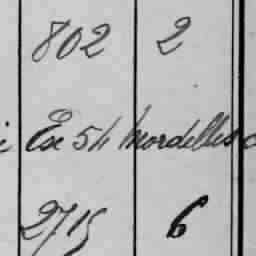 802 2
Ex 54 Mordelles
2715 6